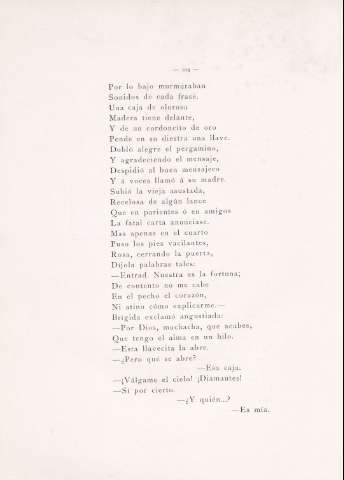 Por lo bajo murmuraban
Sonidos de cada frase.
Una caja de oloroso
Madera tiene delante,
Y de un cordoncito de oro
Pende en su diestra una llave.
Dobló alegre el pergamino,
Y agradeciendo el mensaje,
Despidió al buen mensajero
Y á voces llamó á su madre.
Subió la vieja asustada,
Recelosa de algún lance
Que en parientes ó en amigos
La fatal carta anunciase.
Mas apenas en el cuarto
Puso los pies vacilantes,
Rosa, cerrando la puerta,
Díjola palabras tales:
—Entrad. Nuestra es la fortuna;
De contento no me cabe
En el pecho el corazón,
Ni atino cómo explicarme.—
Brígida exclamó angustiada:
—Por Dios, muchacha, que acabes,
Que tengo el alma en un hilo.
—Esta llavecita la abre.
—¿Pero qué se abre?
—Esa caja.
—¡Válgame el cielo! ¡Diamantes!
—Sí por cierto.
—¿Y quién...?
—Es mía.